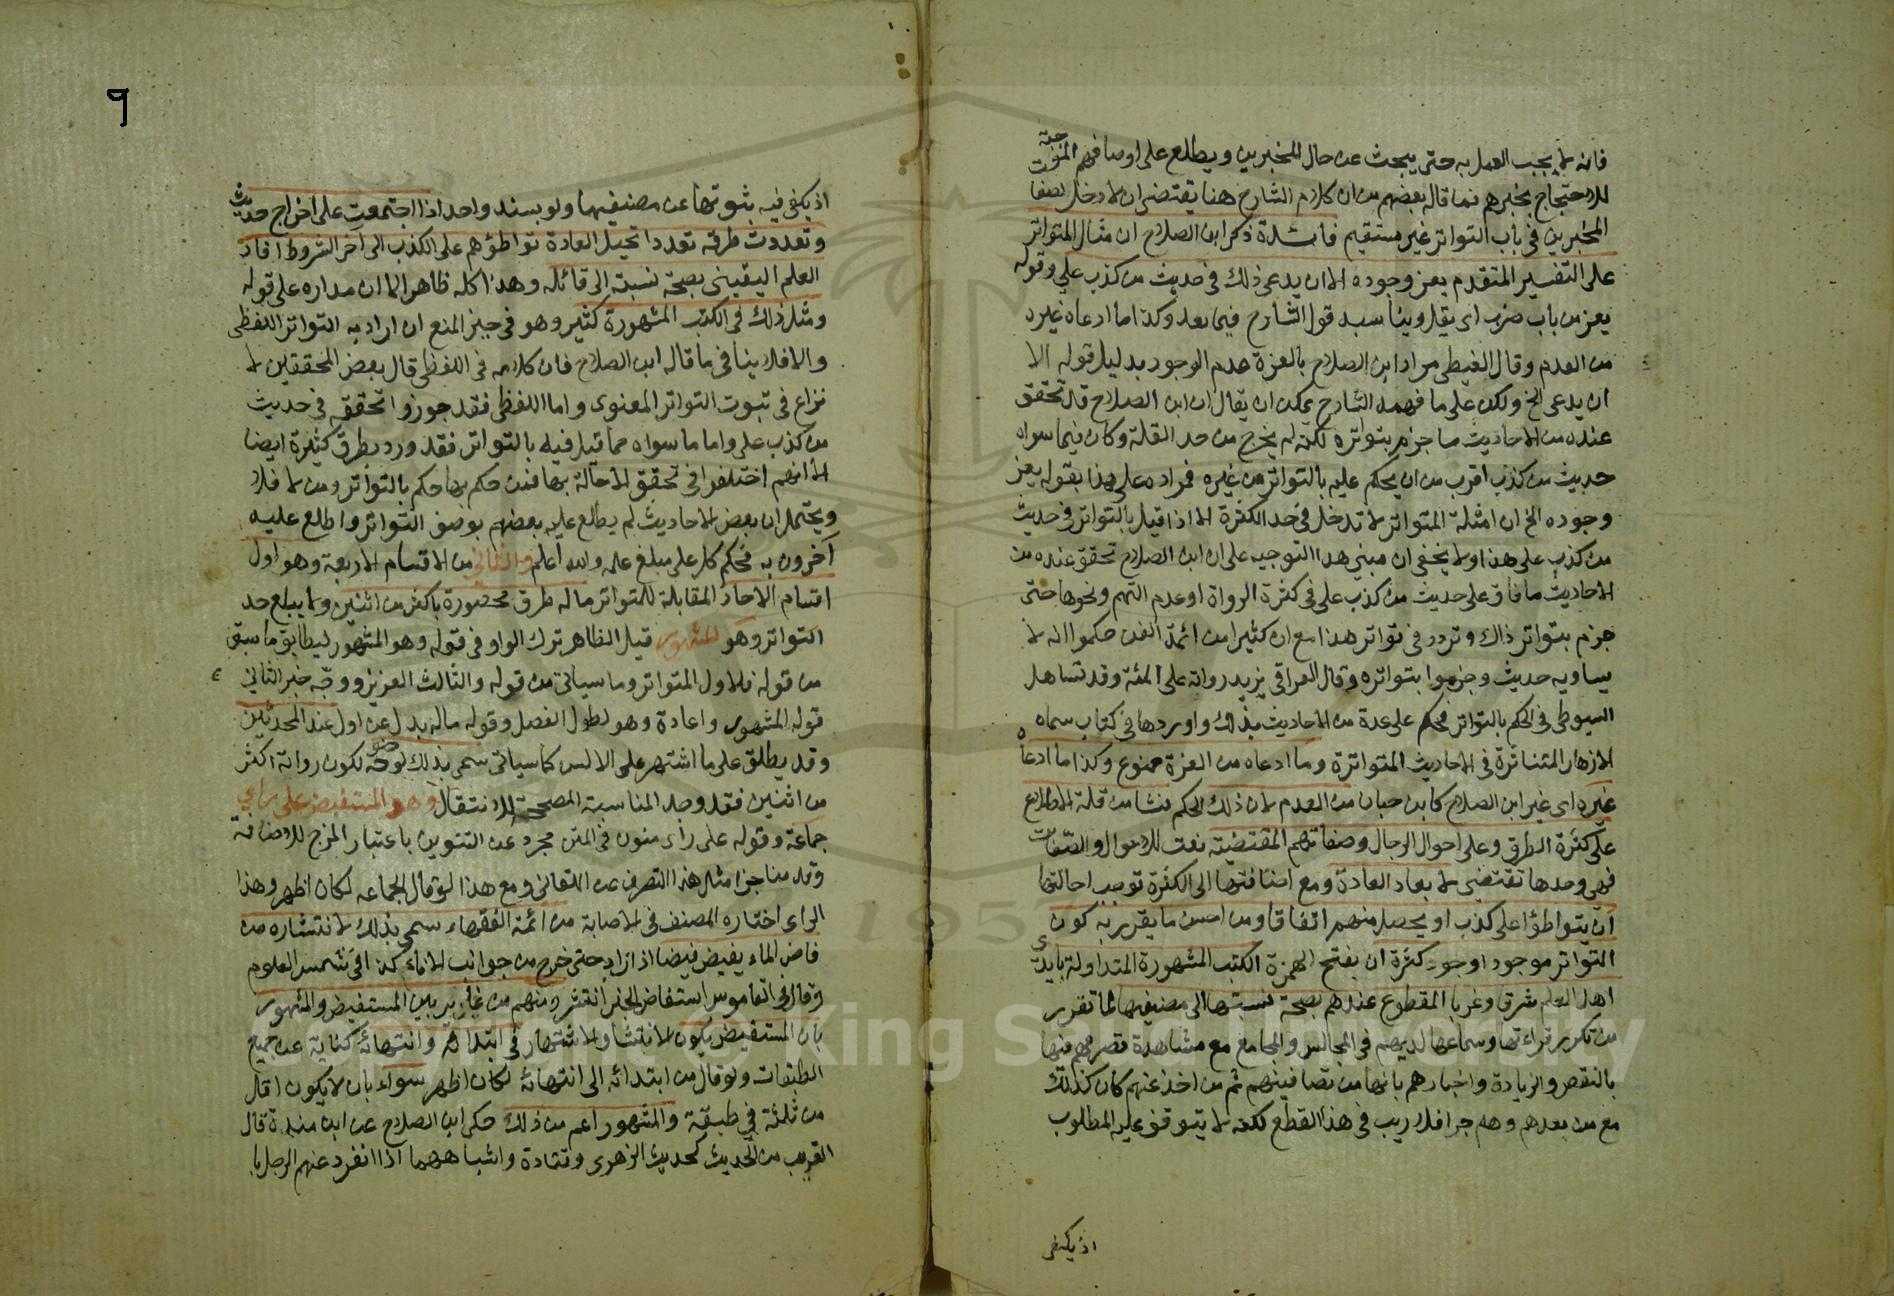 فانه لا يجب العمل به حتى يبحث عن حال المخبرين ويطلع على اوصافهم
للاحتجاج بخبرهم فما قاله بعضهم من ان كلام الشارح هنا يقتضى ان لا دخل لصفا
المخبرين في باب التواتر غير مستقيم فائدة ذكر ابن الصلاح ان مثال المتواتر
على التفسير المتقدم يعز وجوده الا ان يدعى ذلك في حديث من كذب علي وقوله
يعز من باب ضرب اى يقل ويناسبه قول الشارح فيما بعد وكذا ما ادعاه غيره
من العدم وقال الغيطى مراد ابن الصلاح بالعزة عدم الوجود بدليل قوله الا
ان يدعى الخ ولكن على ما فهمه الشارح يمكن ان يقال ان ابن الصلاح قد تحقق
عنده من الاحاديث ما جزم بتواتره لكنه لم يخرج من حد القلة وكان فيما سواه
حديث من كذب اقرب من ان يحكم عليه بالتواتر من غيره فمراده على هذا بقوله يعز
وجوده الخ ان امثلة المتواتر لا تدخل في حد الكثرة الا اذا قيل بالتواتر في حديث
من كذب على هذا ولا يخفى ان مبنى هذا التوجيه على ان ابن الصلاح تحقق عنده من
الاحاديث ما فاق على حديث من كذب على في كثرة الرواة او عدم التهم ونحوها حتى
جزم بتواتر ذاك وتردد في تواتر هذا مع ان كثيرا من ائمة الفن حكموا انه لا
يساويه حديث وجزموا بتواتره وقال العراقى يزيد رواته على المئة وقد تساهل
السيوطى في الحكم بالتواتر فحكم على عدة من الاحاديث بذلك واوردها في كتاب سماه
الازهار المتناثرة في الاحاديث المتواترة وما ادعاه من العزة ممنوع وكذا ما ادعاه
غيره اى غير ابن الصلاح كابن حبان من العدم لان ذلك الحكم نشا من قلة الاطلاع
على كثرة الطرق وعلى احوال الرجال وصفاتهم المقتضية نعت للاحوال والصفات
فهى وحدها تقتضى لابعاد العادة ومع اضافتها الى الكثرة توجب احالتها
ان يتواطؤا على كذب او يحصل منهم اتفاقا ومن احسن ما يقرر به كون
التواتر موجودا وجود كثرة ان بفتح الهمزة الكتب المشهورة المتداولة بايدى
اهل العلم شرقا وغربا المقطوع عندهم بصحة نسبتها الى مصنفيها لما تقرر
من تكرر قراءتها وسماعها لديهم في المجالس والمجامع مع مشاهدة تصرفهم فيها
بالنقص والزيادة واخبارهم بانها من تصانيفهم ثم من اخذ عنهم كان كذلك
مع من بعدهم وهلم جرا فلا ريب في هذا القطع لكنه لا يتوقف عليه المطلوب
اذ يكفى
٩
اذ يكفى فيه ثبوتها عن مصنفيها ولو بسند واحد اذا اجتمعت على اخراج حديث
وتعددت طرقه تعددا تحيل العادة تواطؤهم على الكذب الى آخر الشروط افاد
العلم اليقينى بصحة نسبته الى قائله وهذا كله ظاهر الا ان مداره على قوله
ومثل ذلك في الكتب المشهورة كثير وهو في حيز المنع ان اراد به التواتر اللفظى
والا فلا ينافى ما قاله ابن الصلاح فان كلامه في اللفظى قال بعض المحققين لا
نزاع في ثبوت التواتر المعنوى واما اللفظى فقد جوزوا تحققه في حديث
من كذب على واما ما سواه مما قيل فيه بالتواتر فقد ورد بطرق كثيرة ايضا
الا انهم اختلفوا في تحقق الاحالة بها فمن حكم بها حكم بالتواتر ومن لا فلا
ويحتمل ان بعض الاحاديث لم يطلع عليه بعضهم بوصف التواتر واطلع عليه
آخرون به فحكم كل على مبلغ علمه والله اعلم والثاني من الاقسام الاربعة وهو اول
اقسام الاحاد المقابلة للمتواتر ما له طرق محصورة باكثر من اثنين ولا يبلغ حد
التواتر وهو المشهور قيل الظاهر ترك الواو في قوله وهو المشهور ليطابق ما سبق
من قوله فالاول المتواتر وما سياتى من قوله والثالث العزيز ووجه خبر الثانى
قوله المشهور واعادة وهو لطول الفصل وقوله ماله بدل عن اول عند المحدثين
وقد يطلق على ما اشتهر على الالسن كما سياتى سمى بذلك لوضوحه لكون رواته اكثر
من اثنين فقد وجد المناسبة المصححة للانتقال وهو المستفيض على راى
جماعة وقوله على راى منون في المتن مجرد عن التنوين باعتبار المزج للاضافة
وقد مناجزا مثل هذا التصرف عن اللقانى ومع هذا لو قال الجماعه لكان اظهر وهذا
الراى اختاره المصنف في الاصابة من ائمة الفقهاء سمى بذلك لانتشاره من
فاض الماء يفيض فيضا اذا زاد حتى خرج من جوانب الاناء كذا في شمس العلوم
وقال في القاموس استفاض الخبر انتشر ومنهم من غاير بين المستفيض والمشهور
بان المستفيض يكون الانتشار والاشتهار في ابتدائه وانتهائه كناية عن جميع
الطبقات ولو قال من ابتدائه الى انتهائه لكان اظهر سواء بان لا يكون اقل
من ثلثة في طبقة والمشهور اعم من ذلك حكى ابن الصلاح عن ابن مندة قال
الغريب من الحديث كحديث الزهرى وقتادة واشباههما اذا انفرد عنهم الرجل با